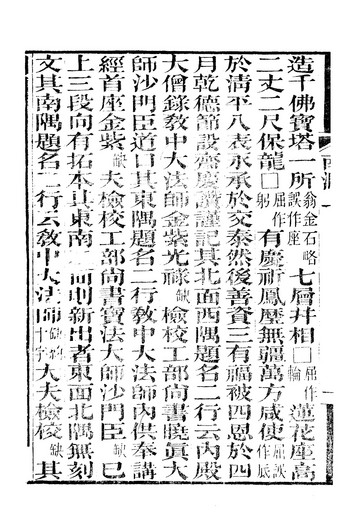 造千佛寶塔一所翁金石略誤作座七層并相□屈作輪蓮花座高
二丈二尺保龍□屈作躬有慶祈鳳歷無疆萬方咸使屈誤作底
於清平八表永承於交泰然後善資三有福被四恩於四
月乾德節設齋慶讚謹記其北面西隅題名二行云內殿
大僧錄教中大法師金紫光祿缺檢校工部尚書曉眞大
師沙門臣道口其東隅題名二行教中大法師內供奉講
經首座金紫缺夫檢校工部尚書寶法大師沙門臣缺已
上三段向有拓本其東南二面則新出者東面北隅無刻
文其南隅題名二行云教中大法師缺十字大夫檢校缺其